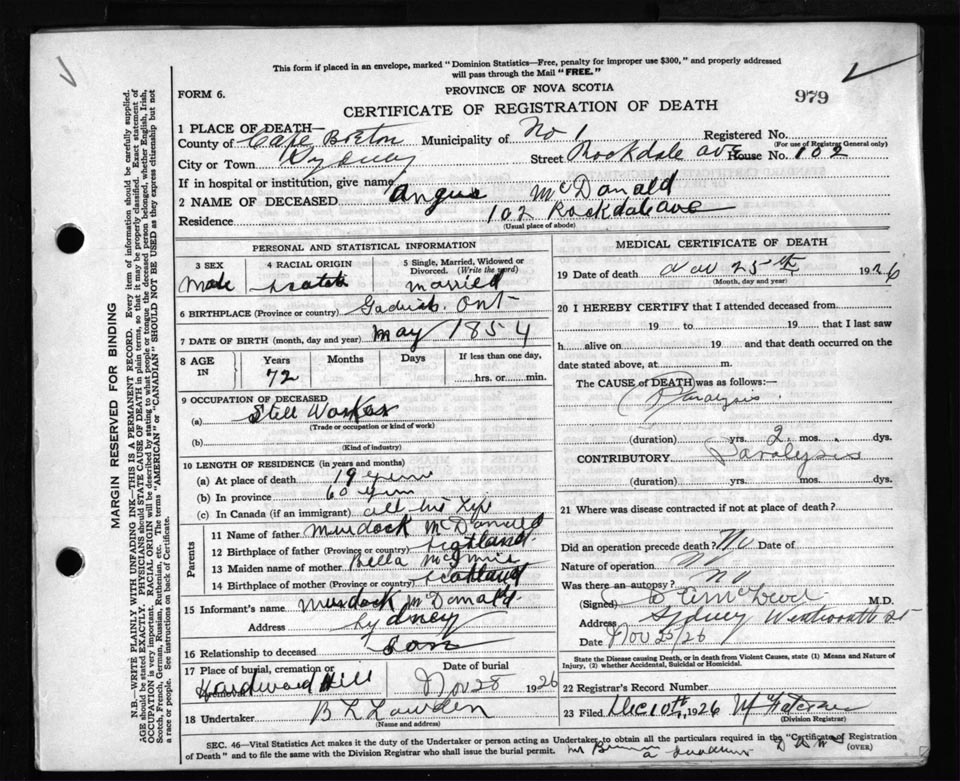 This form if placed in an envelope, marked "Dominion Statistics—Free, penalty for improper use $300," and properly addressed
will pass through the Mail "FREE."
FORM 6.
PROVINCE OF NOVA SCOTIA
979
CERTIFICATE OF REGISTRATION OF DEATH
1 PLACE OF DEATH—
County of Cape Breton Municipality of No 1 Registered No.
(For use of Registrar General only)
City or Town Sydney Street Rockdale Ave House No. 102
If in hospital or institution, give name
2 NAME OF DECEASED Angus McDonald
Residence 102 Rockdale ave
(Usual place of abode)
PERSONAL AND STATISTICAL INFORMATION
3 SEX
Male
4 RACIAL ORIGIN
Scotch
5 Single, Married, Widowed or
Divorced. (Write the word)
married
6 BIRTHPLACE (Province or country) Ont
7 DATE OF BIRTH (month, day and year) May 1854
8 AGE IN
Years Months Days If less than one day,
72
hrs. or min.
9 OCCUPATION OF DECEASED
(a) Still Worker
(Trade or occupation or kind of work)
(b)
(Kind of industry)
10 LENGTH OF RESIDENCE (in years and months)
(a) At place of death 19 years
(b) In province 60 years
(c) In Canada (if an immigrant) all his life
Parents
11 Name of father Murdock McDonald
12 Birthplace of father (Province or country) Scotland
13 Maiden name of mother Bella
14 Birthplace of mother (Province or country) Scotland
15 Informant's name Murdock McDonald
Address Sydney
16 Relationship to deceased Son
17 Place of burial, cremation or
Hardwood Hill
Date of burial
Nov 28 1926
18 Undertaker B L
(Name and address)
MEDICAL CERTIFICATE OF DEATH
19 Date of death Nov 25th 1926
(Month, day and year)
20 I HEREBY CERTIFY that I attended deceased from
19 to 19 that I last saw
h alive on 19 and that death occurred on the
date stated above, at m.
The CAUSE of DEATH was as follows:—
Paralysis
(duration) yrs. 2 mos. dys.
CONTRIBUTORY Paralysis
(duration) yrs. mos. dys.
21 Where was disease contracted if not at place of death?
Did an operation precede death? No Date of
Nature of operation No
Was there an autopsy? No
(Signed) M.D.
Address Sydney Wentworth St
Date Nov 25/26
State the Disease causing Death, or in death from Violent Causes, state (1) Means and Nature of
Injury, (2) whether Accidental, Suicidal or Homicidal.
22 Registrar's Record Number
23 Filed Dec 10th, 1926
(Division Registrar)
SEC. 46—Vital Statistics Act makes it the duty of the Undertaker or person acting as Undertaker to obtain all the particulars required in the "Certificate of Registration
of Death" and to file the same with the Division Registrar who shall issue the burial permit.
(OVER)
MARGIN RESERVED FOR BINDING
N.B.—WRITE PLAINLY WITH UNFADING INK—THIS IS A PERMANENT RECORD. Every item of information should be carefully supplied.
AGE should be stated EXACTLY. PHYSICIANS should STATE CAUSE OF DEATH in plain terms, so that it may be properly classified. Exact statement of
OCCUPATION is very important. RACIAL ORIGIN will be described by stating to what people or tongue the deceased person belonged, whether English, Irish,
Scotch, French, German, Russian, Ruthenian, etc. The terms "AMERICAN" or "CANADIAN" SHOULD NOT BE USED as they express citizenship but not
a race or people. See instructions on back of Certificate.